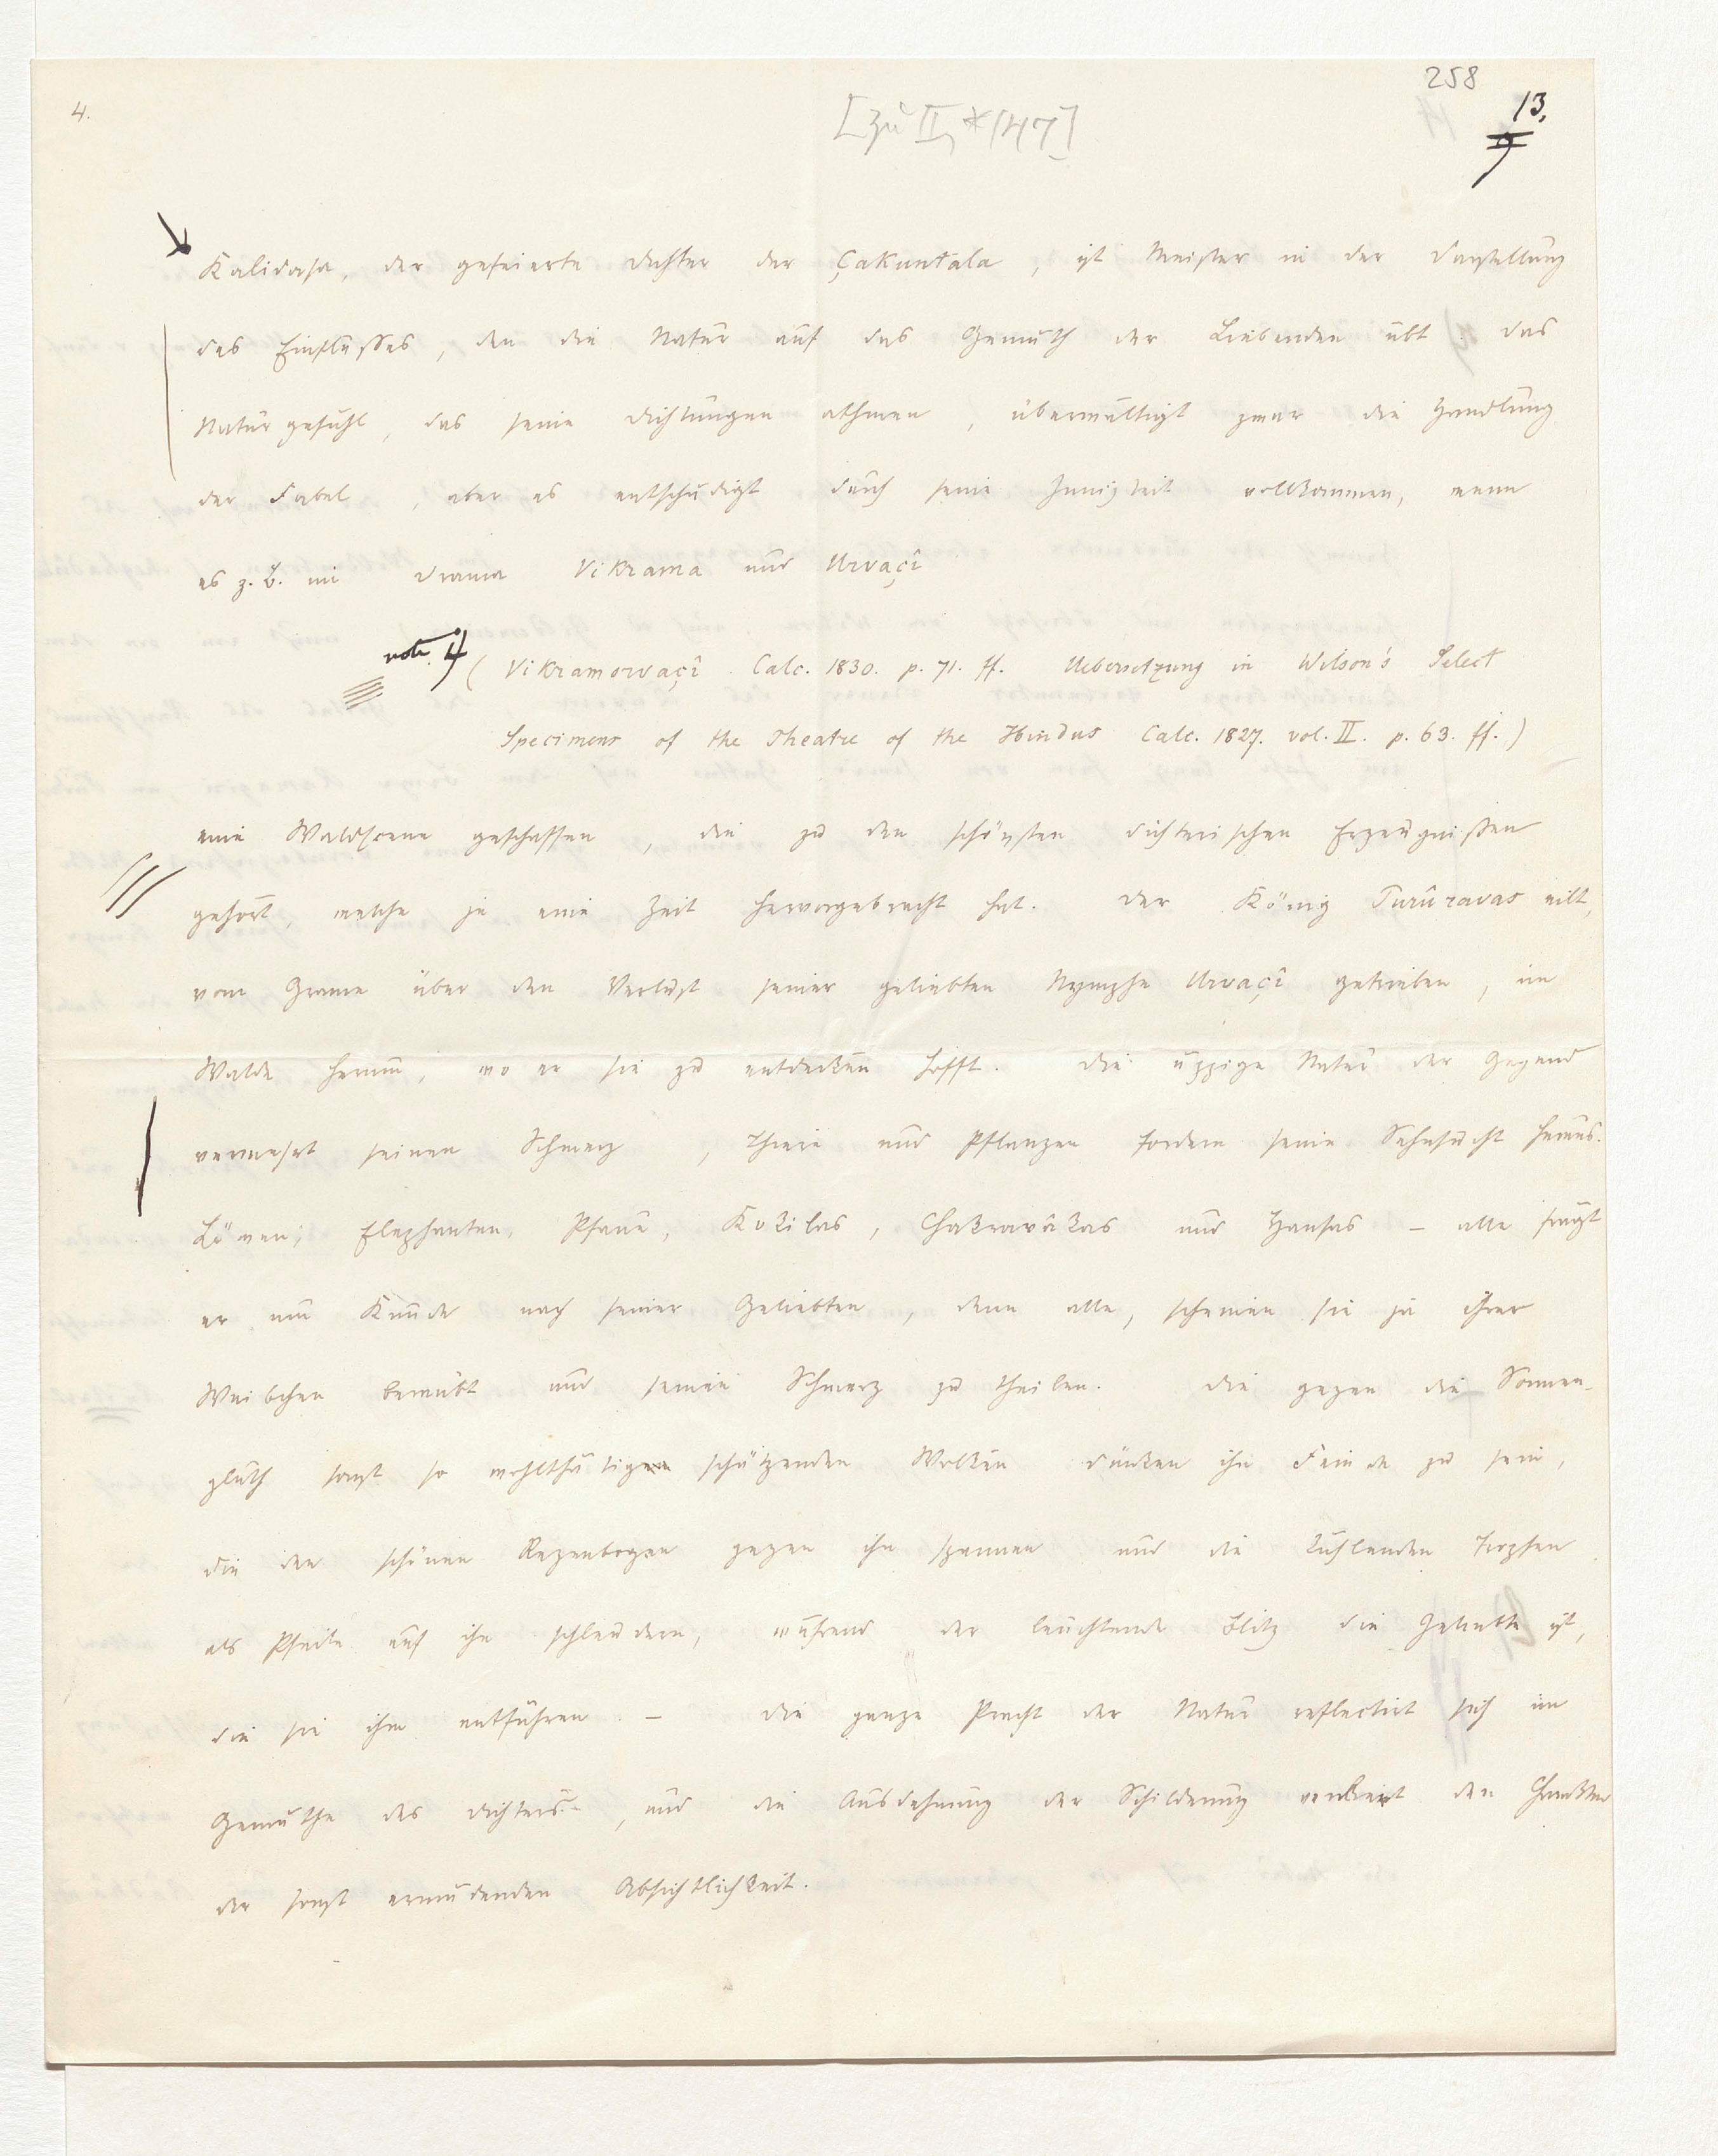 258
4.
[zu II, *147]
13.
9
Kalidasa, der gefeierte Dichter der Çakuntala, ist Meister in der Darstellung
des Einflußes, den die Natur auf das Gemüth der Liebenden übt. Das
Naturgefühl, das seine Dichtungen athmen, überwältigt zwar die Handlung
der Fabel, aber es entschädigt durch seine Innigkeit vollkommen, wenn
es z. B. im Drama Vikrama und Urvaçî
note 4
(Vikramorvaçî. Calc. 1830. p. 71. ff. Uebersetzung in Wilson's Select
Specimens of the Theatre of the Hindus Calc. 1827. vol. II. p. 63. ff.)
eine Waldscene geschaffen, die zu den schönsten dichterischen Erzeugnißen
gehört, welche je eine Zeit hervorgebracht hat. Der König Purûravas eilt,
vom Grame über den Verlust seiner geliebten Nymphe Urvaçî getrieben, im
Walde herum, wo er sie zu entdecken hofft. Die üppige Natur der Gegend
vermehrt seinen Schmerz, Thiere und Pflanzen fordern seine Sehnsucht heraus.
Löwen, Elephanten, Pfaue, Kokilas, Chakravâkas und Hansas – alle fragt
er um Kunde nach seiner Geliebten, denn alle, scheinen sie ja ihrer
Weibchen beraubt und seinen Schmerz zu theilen. Die gegen die Sonnen-
gluth sonst so wohlthätigen schützenden Wolken dünken ihn Feinde zu sein,
die den schönen Regenbogen gegen ihn spannen und die kühlenden Tropfen
als Pfeile auf ihn schleudern, während der leuchtende Blitz die Geliebte ist,
die sie ihm entführen. – Die ganze Pracht der Natur reflectirt sich im
Gemüthe des Dichters, und die Ausdehnung der Schilderung verliert den Charakter
der sonst ermüdenden Absichtlichkeit.